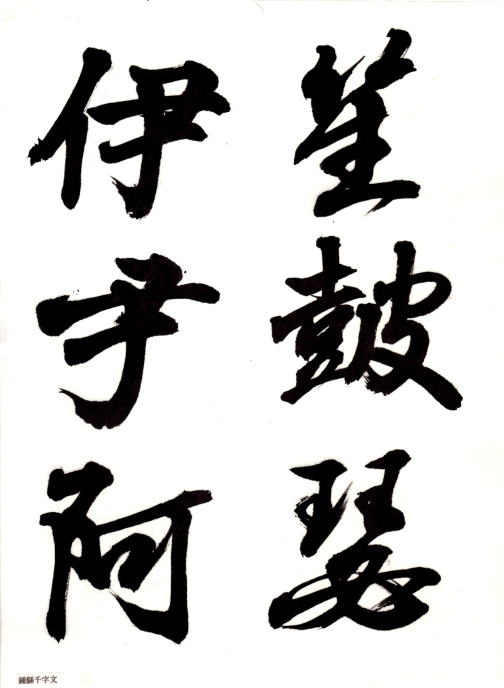 笙皷瑟
伊尹阿
鍾繇千字文